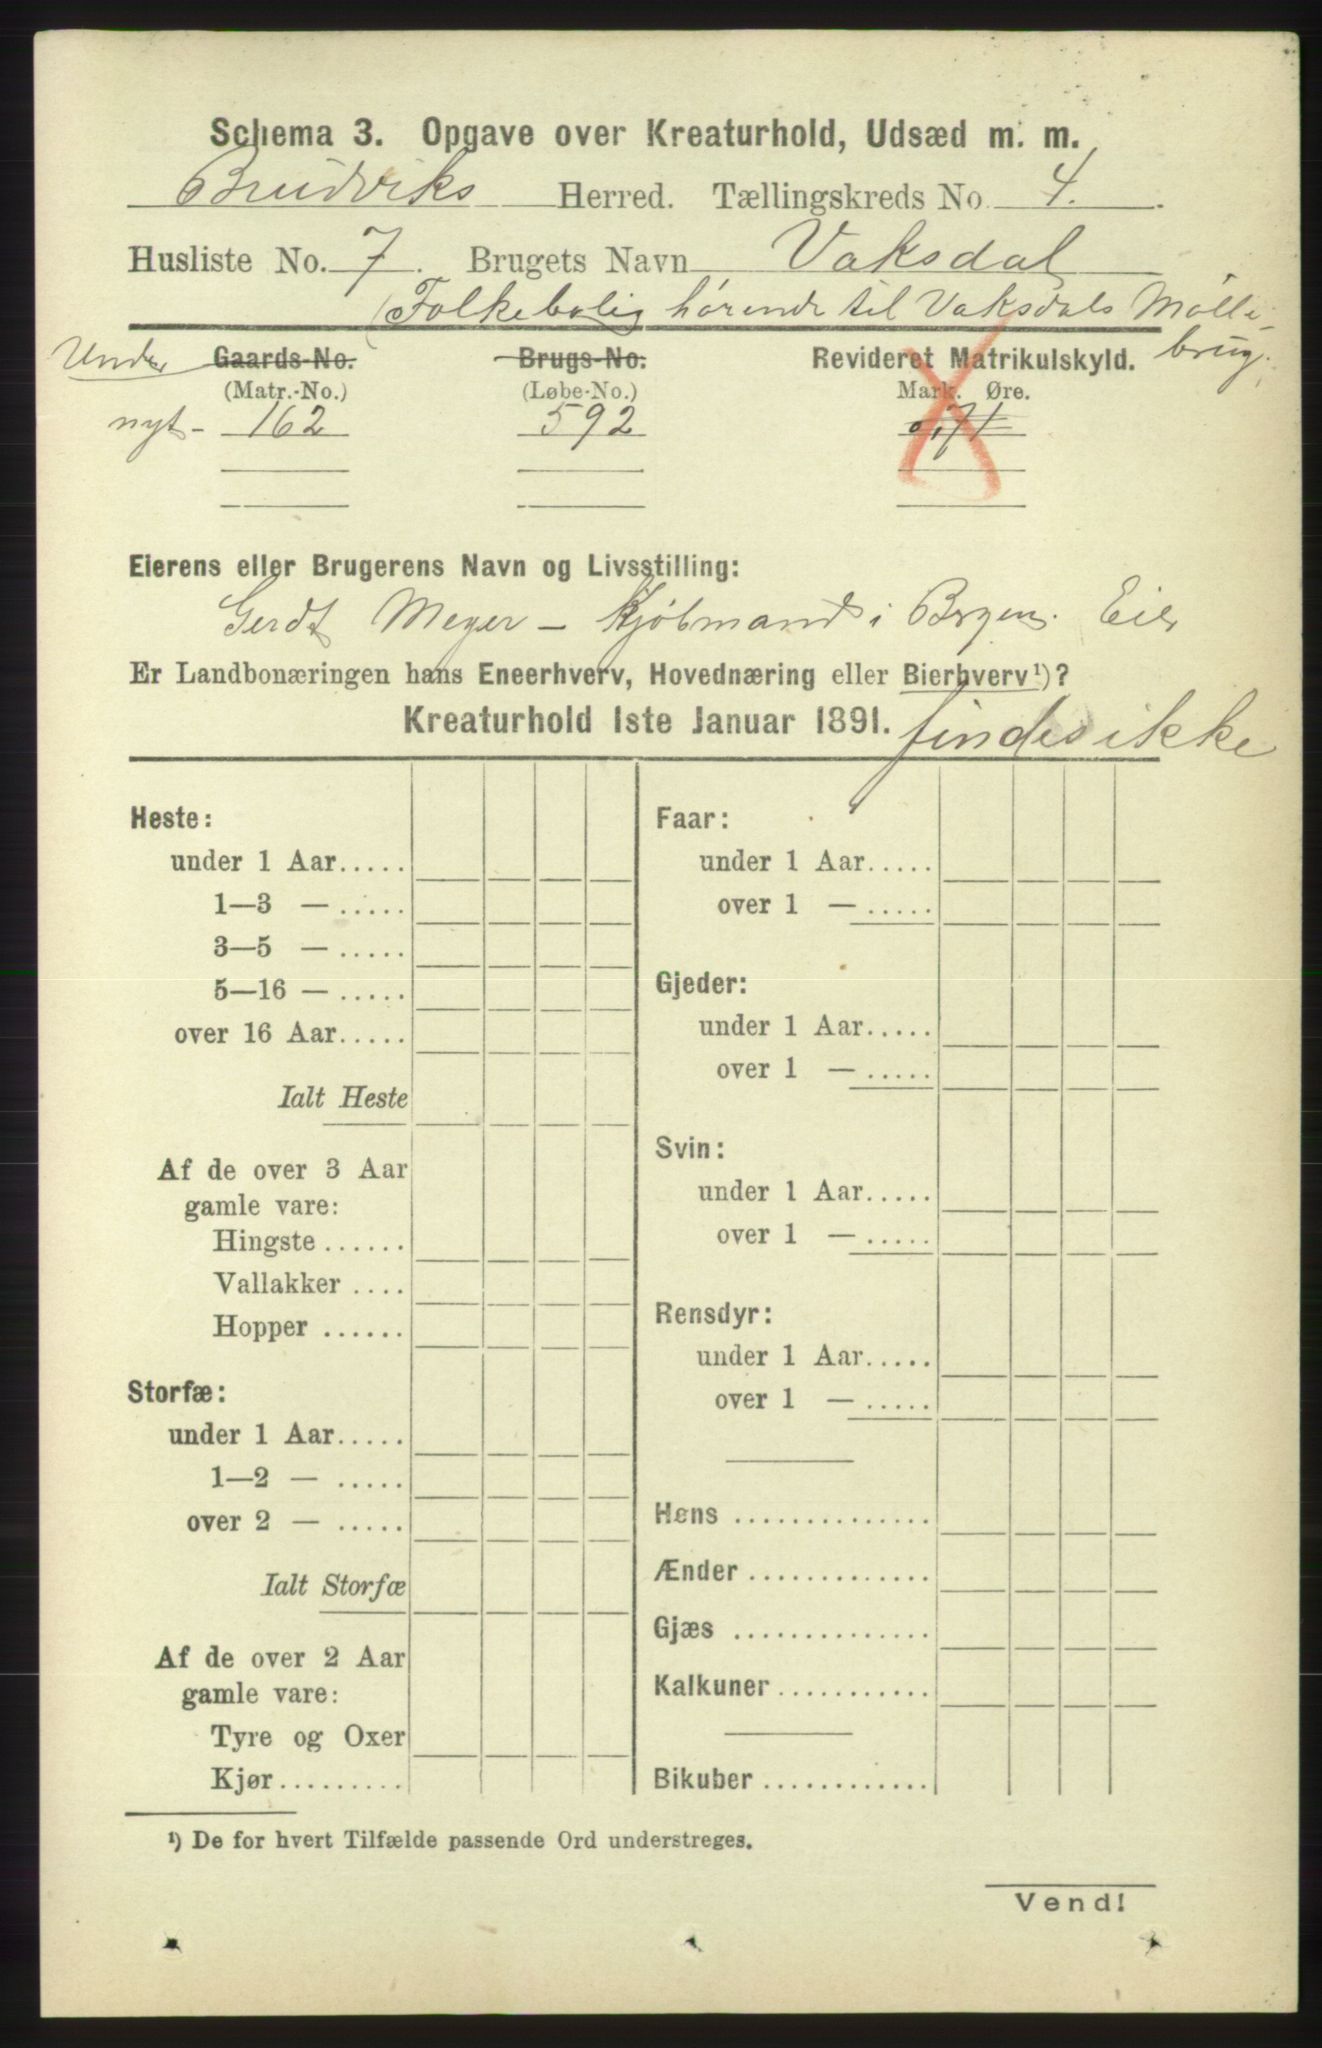 Schema 3. Opgave over Kreaturhold, Udsæd m. m.
Brudviks Herred. Tællingskreds No. 4.
Husliste No. 7. Brugets Navn Vaksdal
(Folkebolig hørende til Vaksdals Mølle-
brug.
Under Gaards-No. Brugs-No. Revideret Matrikulskyld.
(Matr.-No.) (Løbe-No.) Mark. Øre.
nyt - 162 592 0,71
Eierens eller Brugerens Navn og Livsstilling:
Gerdt Meyer - Kjøbmand i Bergen. Eier
Er Landbonæringen hans Eneerhverv, Hovednæring eller Bierhverv¹)?
Kreaturhold 1ste Januar 1891. findes ikke
Heste:
under 1 Aar.....
1—3 — .....
3—5 — .....
5—16 — .....
over 16 Aar.....
Ialt Heste
Af de over 3 Aar
gamle vare:
Hingste......
Vallakker....
Hopper......
Storfæ:
under 1 Aar.....
1—2 — .....
over 2 — .....
Ialt Storfæ
Af de over 2 Aar
gamle vare:
Tyre og Oxer
Kjør.........
Faar:
under 1 Aar.....
over 1 — .....
Gjeder:
under 1 Aar.....
over 1 — .....
Svin:
under 1 Aar.....
over 1 — .....
Rensdyr:
under 1 Aar.....
over 1 — .....
Høns ..............
Ænder.............
Gjæs ..............
Kalkuner...........
Bikuber............
¹) De for hvert Tilfælde passende Ord understreges.
Vend!